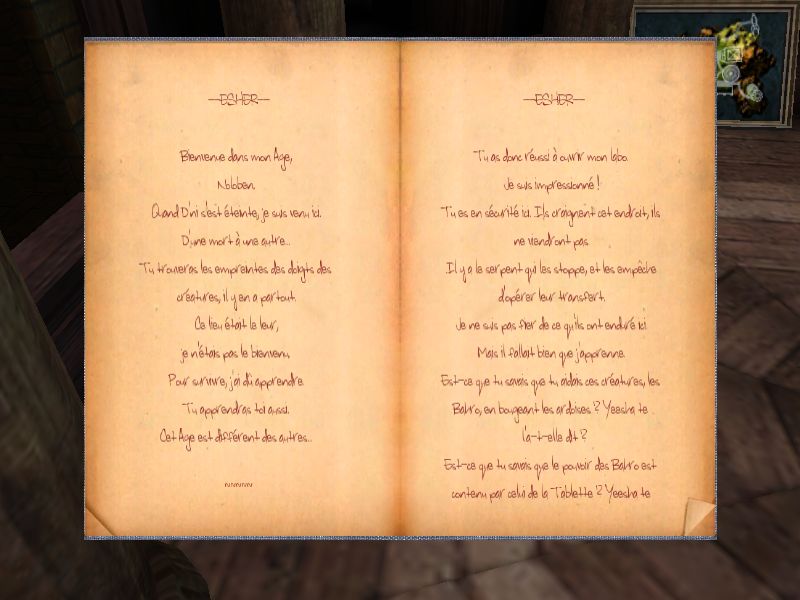 ESHER
Bienvenue dans mon Age,
Noloben.
Quand D'ni s'est éteinte, je suis venu ici.
D'une mort à une autre...
Tu trouveras les empreintes des doigts des
créatures, il y en a partout.
Ce lieu était le leur,
je n'étais pas le bienvenu.
Pour survivre, j'ai dû apprendre.
Tu apprendras toi aussi.
Cet Age est différent des autres...
~~~~~
ESHER
Tu as donc réussi à ouvrir mon labo.
Je suis impressionné !
Tu es en sécurité ici. Ils craignent cet endroit, ils
ne viendront pas.
Il y a le serpent qui les stoppe, et les empêche
d'opérer leur transfert.
Je ne suis pas fier de ce qu'ils ont enduré ici
Mais il fallait bien que j'apprenne.
Est-ce que tu savais que tu aidais ces créatures, les
Bahro, en bougeant les ardoises ? Yeesha te
l'a-t-elle dit ?
Est-ce que tu savais que le pouvoir des Bahro est
contenu par celui de la Tablette ? Yeesha te